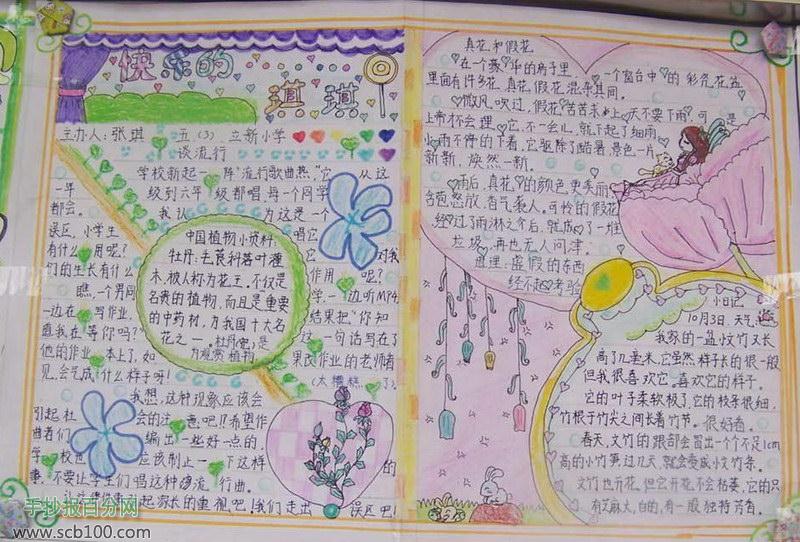 快乐的
琪琪
主办人:张琪 五(3) 立新小学
谈流行
学校新起一阵"流行歌曲热"它从这
一年级到六年级都唱,每个同学
都会。
我认为这是一个
误区,小学生唱它
有什么用呢?它对我
们的生长有什么作用呢?
瞧,一个男同学,一边听MP4
一边在写作业,结果把"你知
道我在等你吗?"这一句话写在了
他的作业本上了,如果改作业的老师看
见,会气成什么样子呀!(太糟糕了)
我想,这种现象应该会
引起社会的注意吧!!希望作
曲者们编出一些好一点的,
学校也应该制止一下这样的
事,不要让学生们唱这种流行曲。
起家长的重视吧!我们走出误区吧!
中国植物小资料:
牡丹:毛茛科落叶灌
木,被人称为花王。不仅是
名贵的植物,而且是重要
的中药材,为我国十大名
花之一。牡丹是
为观赏植物
真花和假花
在一个豪华的房子里,一个窗台中的彩瓷花盆
里面有许多花,真花,假花混杂其间。
微风吹过,假花苦苦求上天不要下雨,可是
上帝不会理它,不一会儿,就下起了细雨
小雨不停的下着,它驱除了暑暑,景色一片
新新,焕然一新。
雨后,真花的颜色更美丽
含苞怒放,香气袭人。可怜的假花
经过了雨淋之后,就成了一堆
垃圾,再也无人问津。
道理:虚假的东西
经不起考验
小日记
10月3日,天气:
我家的一盆文竹又长
高了几毫米,它虽然样子长的很一般
但我很喜欢它,喜欢它的样子。
它的叶子柔软极了,它的枝条很细,
竹根于竹尖之间长着竹节。很好看。
春天,文竹的跟部会冒出一个个不足1cm
高的小竹笋过几天,就会变成小文竹条。
文竹也开花,但它开花不会枯萎,它的只
有芝麻大,白的,有一股独特芳香。
手抄报百分网
www.scb100.com